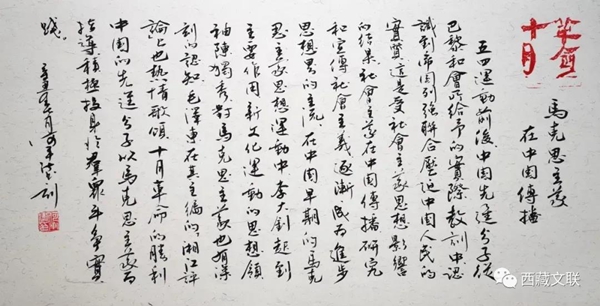 革命
十月
馬克思主義
在中國傳播
五四運動前後中国先進分子從
巴黎和會所給予的實際教訓中認
識到帝国列強聯合壓迫中国人民的
實質這是受社會主義思想影響
的結果社會主義在中國傳播研究
和宣傳社會主義逐漸成為進步
思想界的主流在中国早期的馬克
思主義思想運動中李大釗起到
主要作用新文化運動的思想領
袖陳獨秀對馬克思主義也有深
刻的認知毛澤東在其主編的湘江評
論上也熱情歌頌十月革命的勝利
中国的先進分子以馬克思主義為
指導積極投身於羣眾斗爭實
踐
西藏文联